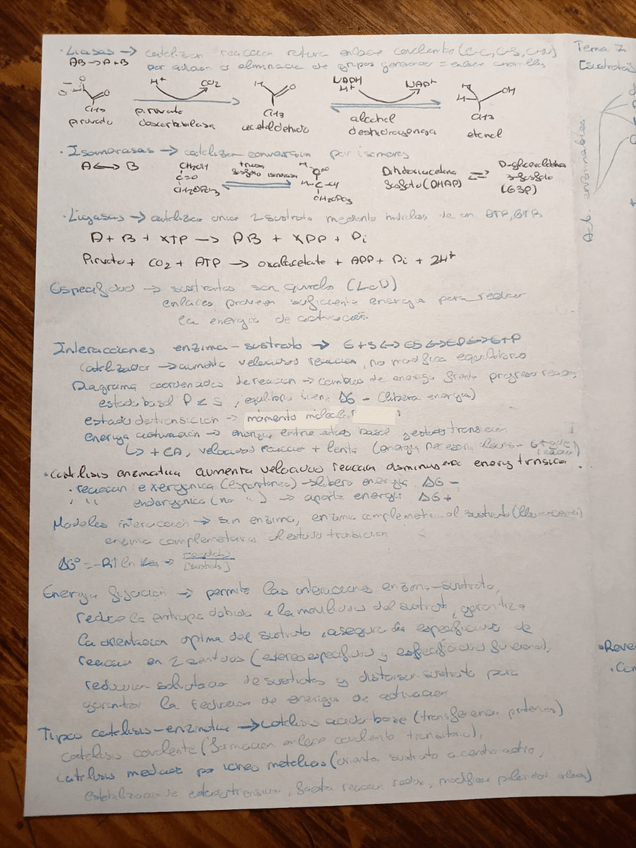 · Liasas → catalizan reaccion rotura enlaces covalentes (C-C, C-S, C-N)
AB → A + B por adicion o eliminacion de grupos
H⁺ CO₂ H NADPH H⁺ NADP⁺ OH
CH₃ CH₃ CH₃
piruvato piruvato descarboxilasa acetaldehido alcohol deshidrogenasa etanol
· Isomerasas → catalizan conversion por isomeros
A ↔ B CH₂OH C=O CH₂OPO₃ triosa fosfato isomerasa CH₂OPO₃ Dihidroxiacetona fosfato (DHAP) ⇌ D-gliceraldehido 3-fosfato (G3P)
· Ligasas → catalizan union 2 sustratos mediante hidrolisis de un ATP, GTP
A + B + XTP → AB + XDP + Pi
Piruvato + CO₂ + ATP → oxalacetato + ADP + Pi + 2H⁺
Especificidad → sustratos son quirales (L o D)
enlaces proveen suficiente energia para reducir
la energia de activacion
Interacciones enzima-sustrato → E+S ↔ ES ↔ EP ↔ E+P
Catalizador → aumenta velocidad reaccion, no modifica equilibrio
Diagrama coordenadas de reaccion → cambio de energia frente progreso reaccion
estado basal P ≤ S, equilibrio tiene ΔG - (libera energia)
estado de transicion → momento molecul
energia activacion → energia entre estado basal y estado transicion
↳ + EA, velocidad reaccion + lenta (energia necesaria
· Catalisis enzimatica aumenta velocidad reaccion disminuyendo energia transicion.
· reaccion exergonica (espontanea) → libera energia ΔG -
· " " endergonica (no ") → aporta energia ΔG +
Modelos interaccion → sin enzima, enzima complementaria al sustrato
enzima complementaria al estado transicion
ΔG° = -RT ln Keq → [producto] [sustrato]
Energia fijacion → permite las interacciones enzima-sustrato,
reduce la entropia debida a la movilidad del sustrato, garantiza
la orientacion optima del sustrato, asegura la especificidad de
reaccion en 2 sentidos (estereoespecificidad y especificidad funcional),
reduccion solvatacion de sustratos y distorsion sustrato para
garantizar la reduccion de energia de activacion
Tipos catalisis-enzimatica → Catalisis acido base (transferencia protones)
catalisis covalente (formacion enlace covalente transitorio),
catalisis mediada por iones metalicos (orienta sustrato a centro activo,
estabilizacion de estado transicion, facilita reaccion redox, modifica
Tema 2
Act. enzimables
· Rever